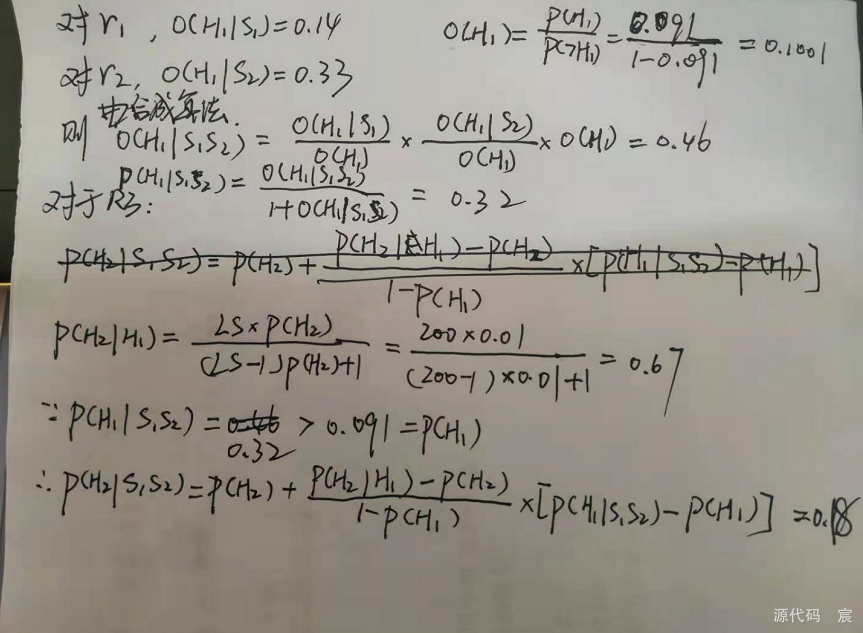 对r₁，O(H₁|S₁)=0.14
O(H₁)=P(H₁)/P(¬H₁)=0.091/(1-0.091)=0.1001
对r₂，O(H₁|S₂)=0.33
由合成算法.
则 O(H₁|S₁S₂)=O(H₁|S₁)/O(H₁)×O(H₁|S₂)/O(H₁)×O(H₁)=0.46
P(H₁|S₁S₂)=O(H₁|S₁S₂)/(1+O(H₁|S₁S₂))=0.32
对于R3:
P(H₂|S₁S₂)=P(H₂)+(P(H₂|H₁)-P(H₂))/(1-P(H₁))×[P(H₁|S₁S₂)-P(H₁)]
P(H₂|H₁)=(LS×P(H₂))/((LS-1)P(H₂)+1)=(200×0.01)/((200-1)×0.01+1)=0.67
∵P(H₁|S₁S₂)=0.32>0.091=P(H₁)
∴P(H₂|S₁S₂)=P(H₂)+(P(H₂|H₁)-P(H₂))/(1-P(H₁))×[P(H₁|S₁S₂)-P(H₁)]=0.18
源代码 宸